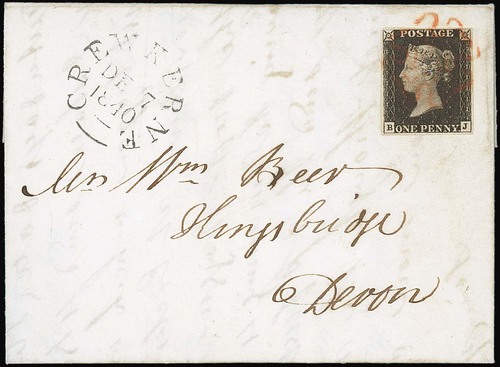 CREWKERNE
DE 7
1840
POSTAGE
B J
ONE PENNY
Mrs Wm Beer
Kingsbridge
Devon